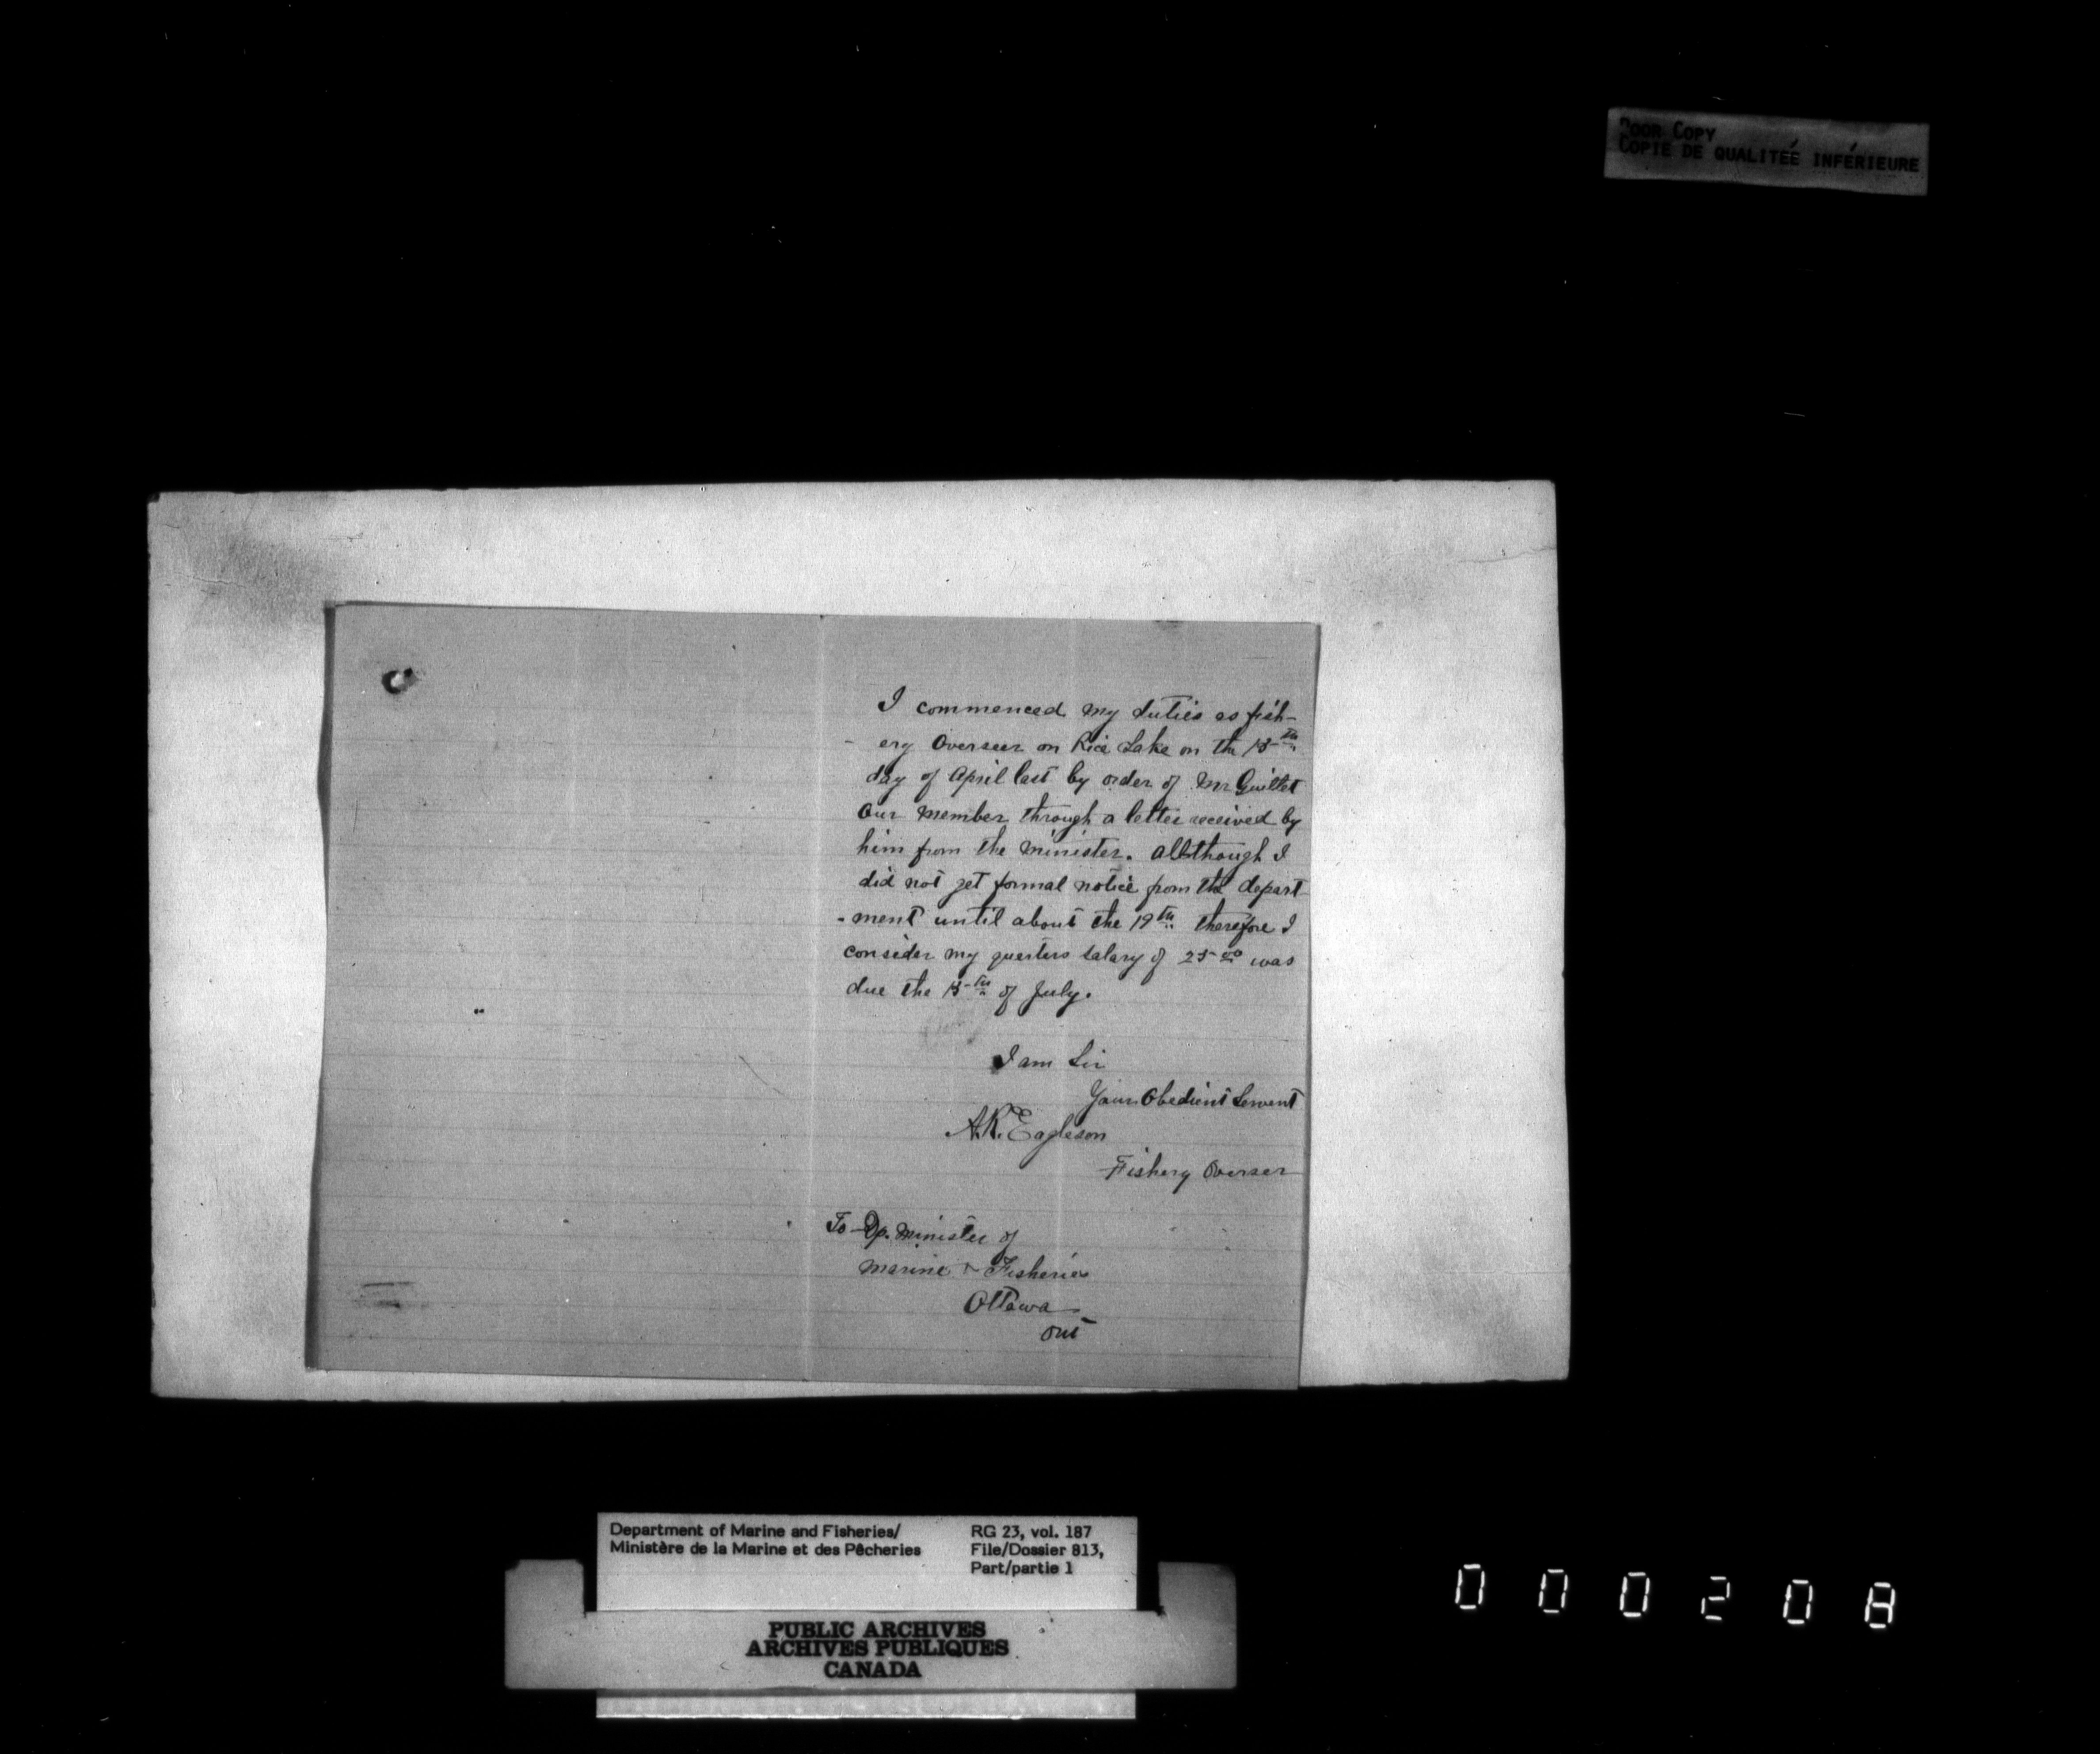 POOR COPY
COPIE DE QUALITEÉ INFÉRIEURE
I commenced my duties as fish-
ery Overseer on Rice Lake on the 15th
day of April last by order of Mr Guillet
Our Member through a letter received by
him from the Minister. allthough I
did not get formal notice from the depart
-ment until about the 19th therefore I
consider my querters salary of 25.00 was
due the 15th of July.
I am Sir
Your Obedient Servent
A.R. Eagleson
Fishery Overser
To Dp. Minister of
Marine & Fisheries
Ottawa
Ont
Department of Marine and Fisheries/
Ministère de la Marine et des Pêcheries
RG 23, vol. 187
File/Dossier 813,
Part/partie 1
PUBLIC ARCHIVES
ARCHIVES PUBLIQUES
CANADA
000208